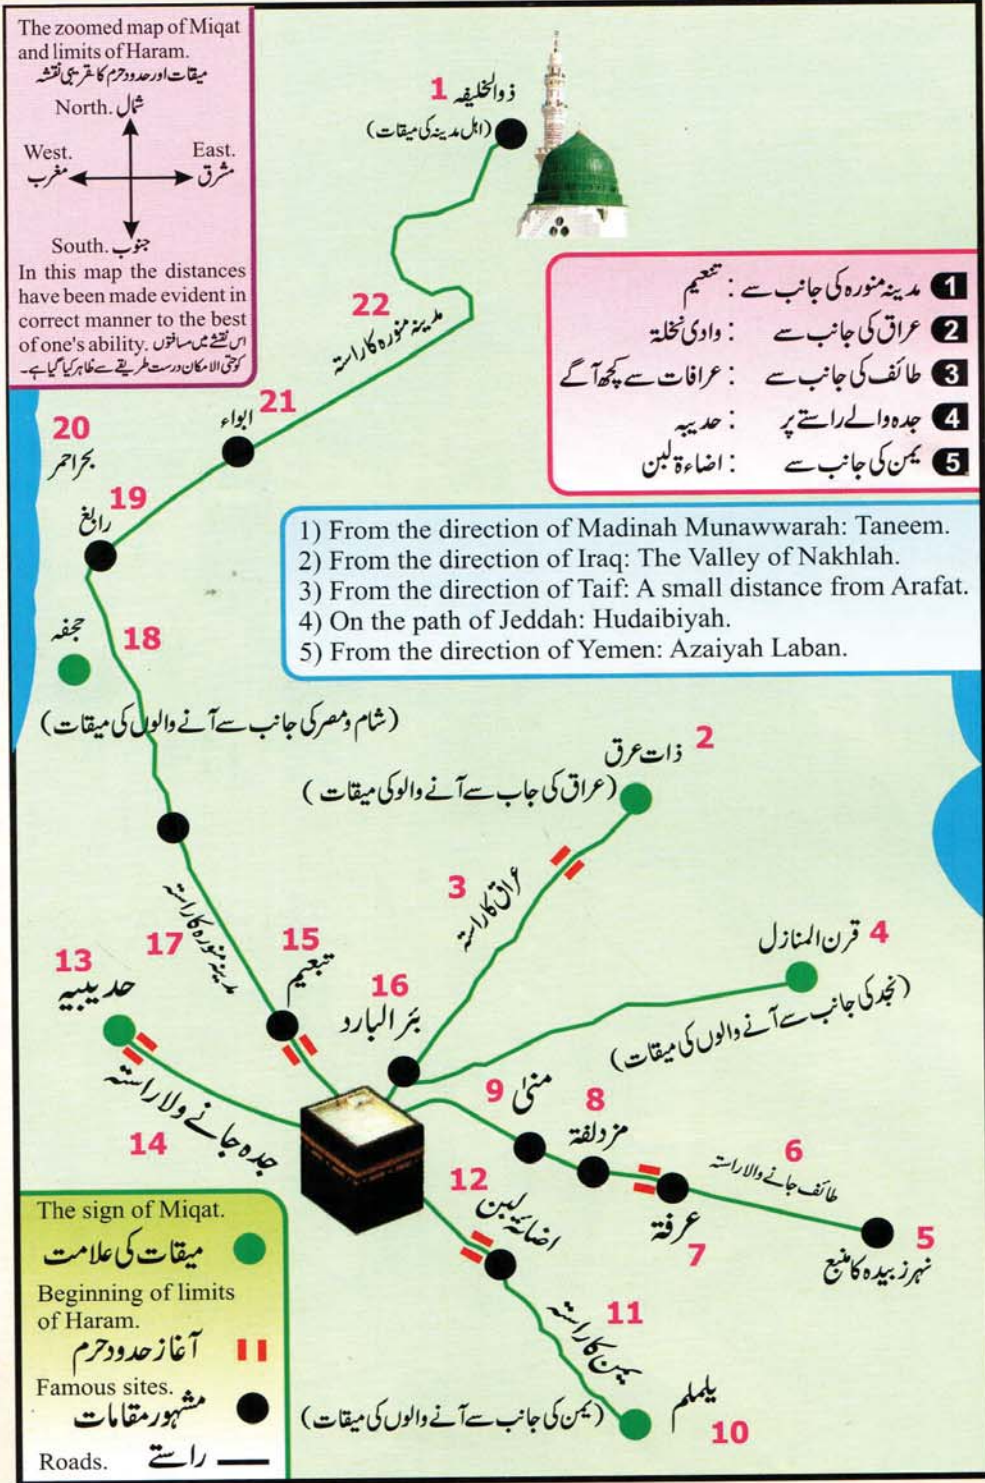 The zoomed map of Miqat
and limits of Haram.
میقات اور حدود حرم کا تقریبی نقشہ
North. شمال
West.
مغرب
East.
مشرق
South. جنوب
In this map the distances
have been made evident in
correct manner to the best
of one's ability. اس نقشے میں مسافتوں
کو حتی الامکان درست طریقے سے ظاہر کیا گیا ہے۔
1 ذوالخلیفہ
(اہل مدینہ کی میقات)
22
مدینہ منورہ کا راستہ
1 مدینہ منورہ کی جانب سے : تنعیم
2 عراق کی جانب سے : وادی نخلة
3 طائف کی جانب سے : عرافات سے کچھ آگے
4 جدہ والے راستے پر : حدیبہ
5 یمن کی جانب سے : اضاءة لبن
21
ابواء
20
بحر احمر
19
رابغ
1) From the direction of Madinah Munawwarah: Taneem.
2) From the direction of Iraq: The Valley of Nakhlah.
3) From the direction of Taif: A small distance from Arafat.
4) On the path of Jeddah: Hudaibiyah.
5) From the direction of Yemen: Azaiyah Laban.
جحفہ
18
(شام ومصر کی جانب سے آنے والوں کی میقات)
2
ذات عرق
(عراق کی جاب سے آنے والو کی میقات)
3
عراق کا راستہ
4 قرن المنازل
(نجد کی جانب سے آنے والوں کی میقات)
17
مدینہ منورہ کا راستہ
15
تنعیم
13
حدیبیہ
16
بئر البارد
14
جدہ جانے ولا راستہ
9 منیٰ
8
مزدلفة
6
طائف جانے والا راستہ
7
عرفة
5
نہر زبیدہ کا منبع
12
اضائة لبن
11
یمن کا راستہ
10
یلملم
(یمن کی جانب سے آنے والوں کی میقات)
The sign of Miqat.
میقات کی علامت
Beginning of limits
of Haram.
آغاز حدود حرم
Famous sites.
مشہور مقامات
Roads. راستے